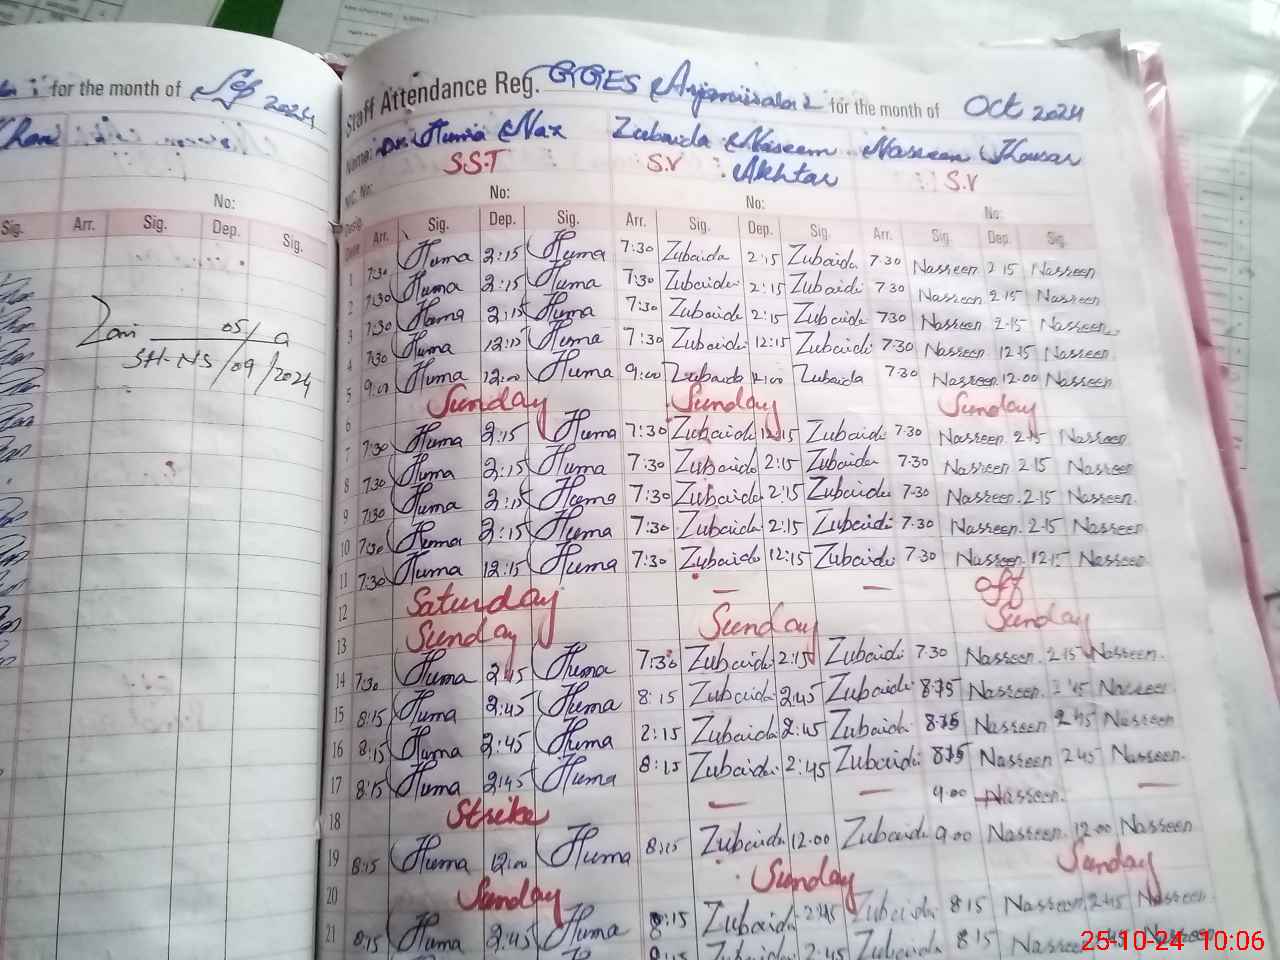 for the month of Sep 2024
Staff Attendance Reg. GGES for the month of Oct 2024
Name: Dr. Huma Naz Zubaida Naseem Nasreen Kousar
S.S.T S.V Akhtar S.V
NIC. No: No: No: No:
No:
Sig. Arr. Sig. Dep. Sig.
Date Arr. Sig. Dep. Sig. Arr. Sig. Dep. Sig. Arr. Sig. Dep. Sig.
1 7:30 Huma 2:15 Huma 7:30 Zubaida 2:15 Zubaida 7.30 Nasreen 2.15 Nasreen
2 7:30 Huma 2:15 Huma 7:30 Zubaida 2:15 Zubaida 7.30 Nasreen 2.15 Nasreen
3 7:30 Huma 2:15 Huma 7:30 Zubaida 2:15 Zubaida 7.30 Nasreen 2.15 Nasreen
4 7:30 Huma 12:15 Huma 7:30 Zubaida 12:15 Zubaida 7.30 Nasreen 12.15 Nasreen
5 9:00 Huma 12:00 Huma 9:00 Zubaida 12:00 Zubaida 7.30 Nasreen 12.00 Nasreen
6 Sunday Sunday Sunday
7 7:30 Huma 2:15 Huma 7:30 Zubaida 12:15 Zubaida 7.30 Nasreen 2.15 Nasreen
8 7:30 Huma 2:15 Huma 7:30 Zubaida 2:15 Zubaida 7.30 Nasreen 2.15 Nasreen
9 7:30 Huma 2:15 Huma 7:30 Zubaida 2:15 Zubaida 7.30 Nasreen 2.15 Nasreen
10 7:30 Huma 2:15 Huma 7:30 Zubaida 2:15 Zubaida 7.30 Nasreen 2.15 Nasreen
11 7:30 Huma 12:15 Huma 7:30 Zubaida 12:15 Zubaida 7.30 Nasreen 12.15 Nasreen
12 Saturday — — off
13 Sunday Sunday Sunday
14 7:30 Huma 2:15 Huma 7:30 Zubaida 2:15 Zubaida 7.30 Nasreen 2.15 Nasreen
15 8:15 Huma 2:45 Huma 8:15 Zubaida 2:45 Zubaida 8.15 Nasreen 2.45 Nasreen
16 8:15 Huma 2:45 Huma 2:15 Zubaida 2:45 Zubaida 8.15 Nasreen 2.45 Nasreen
17 8:15 Huma 2:45 Huma 8:15 Zubaida 2:45 Zubaida 8.15 Nasreen 2.45 Nasreen
18 Strike — — 9.00 Nasreen —
19 8:15 Huma 12:00 Huma 8:15 Zubaida 12.00 Zubaida 9.00 Nasreen 12.00 Nasreen
20 Sunday Sunday Sunday
21 8:15 Huma 2:45 Huma 8:15 Zubaida 2:45 Zubaida 8.15 Nasreen 2.45 Nasreen
Zubaida 2:45 Zubaida 8.15
05/09/2024
25-10-24 10:06